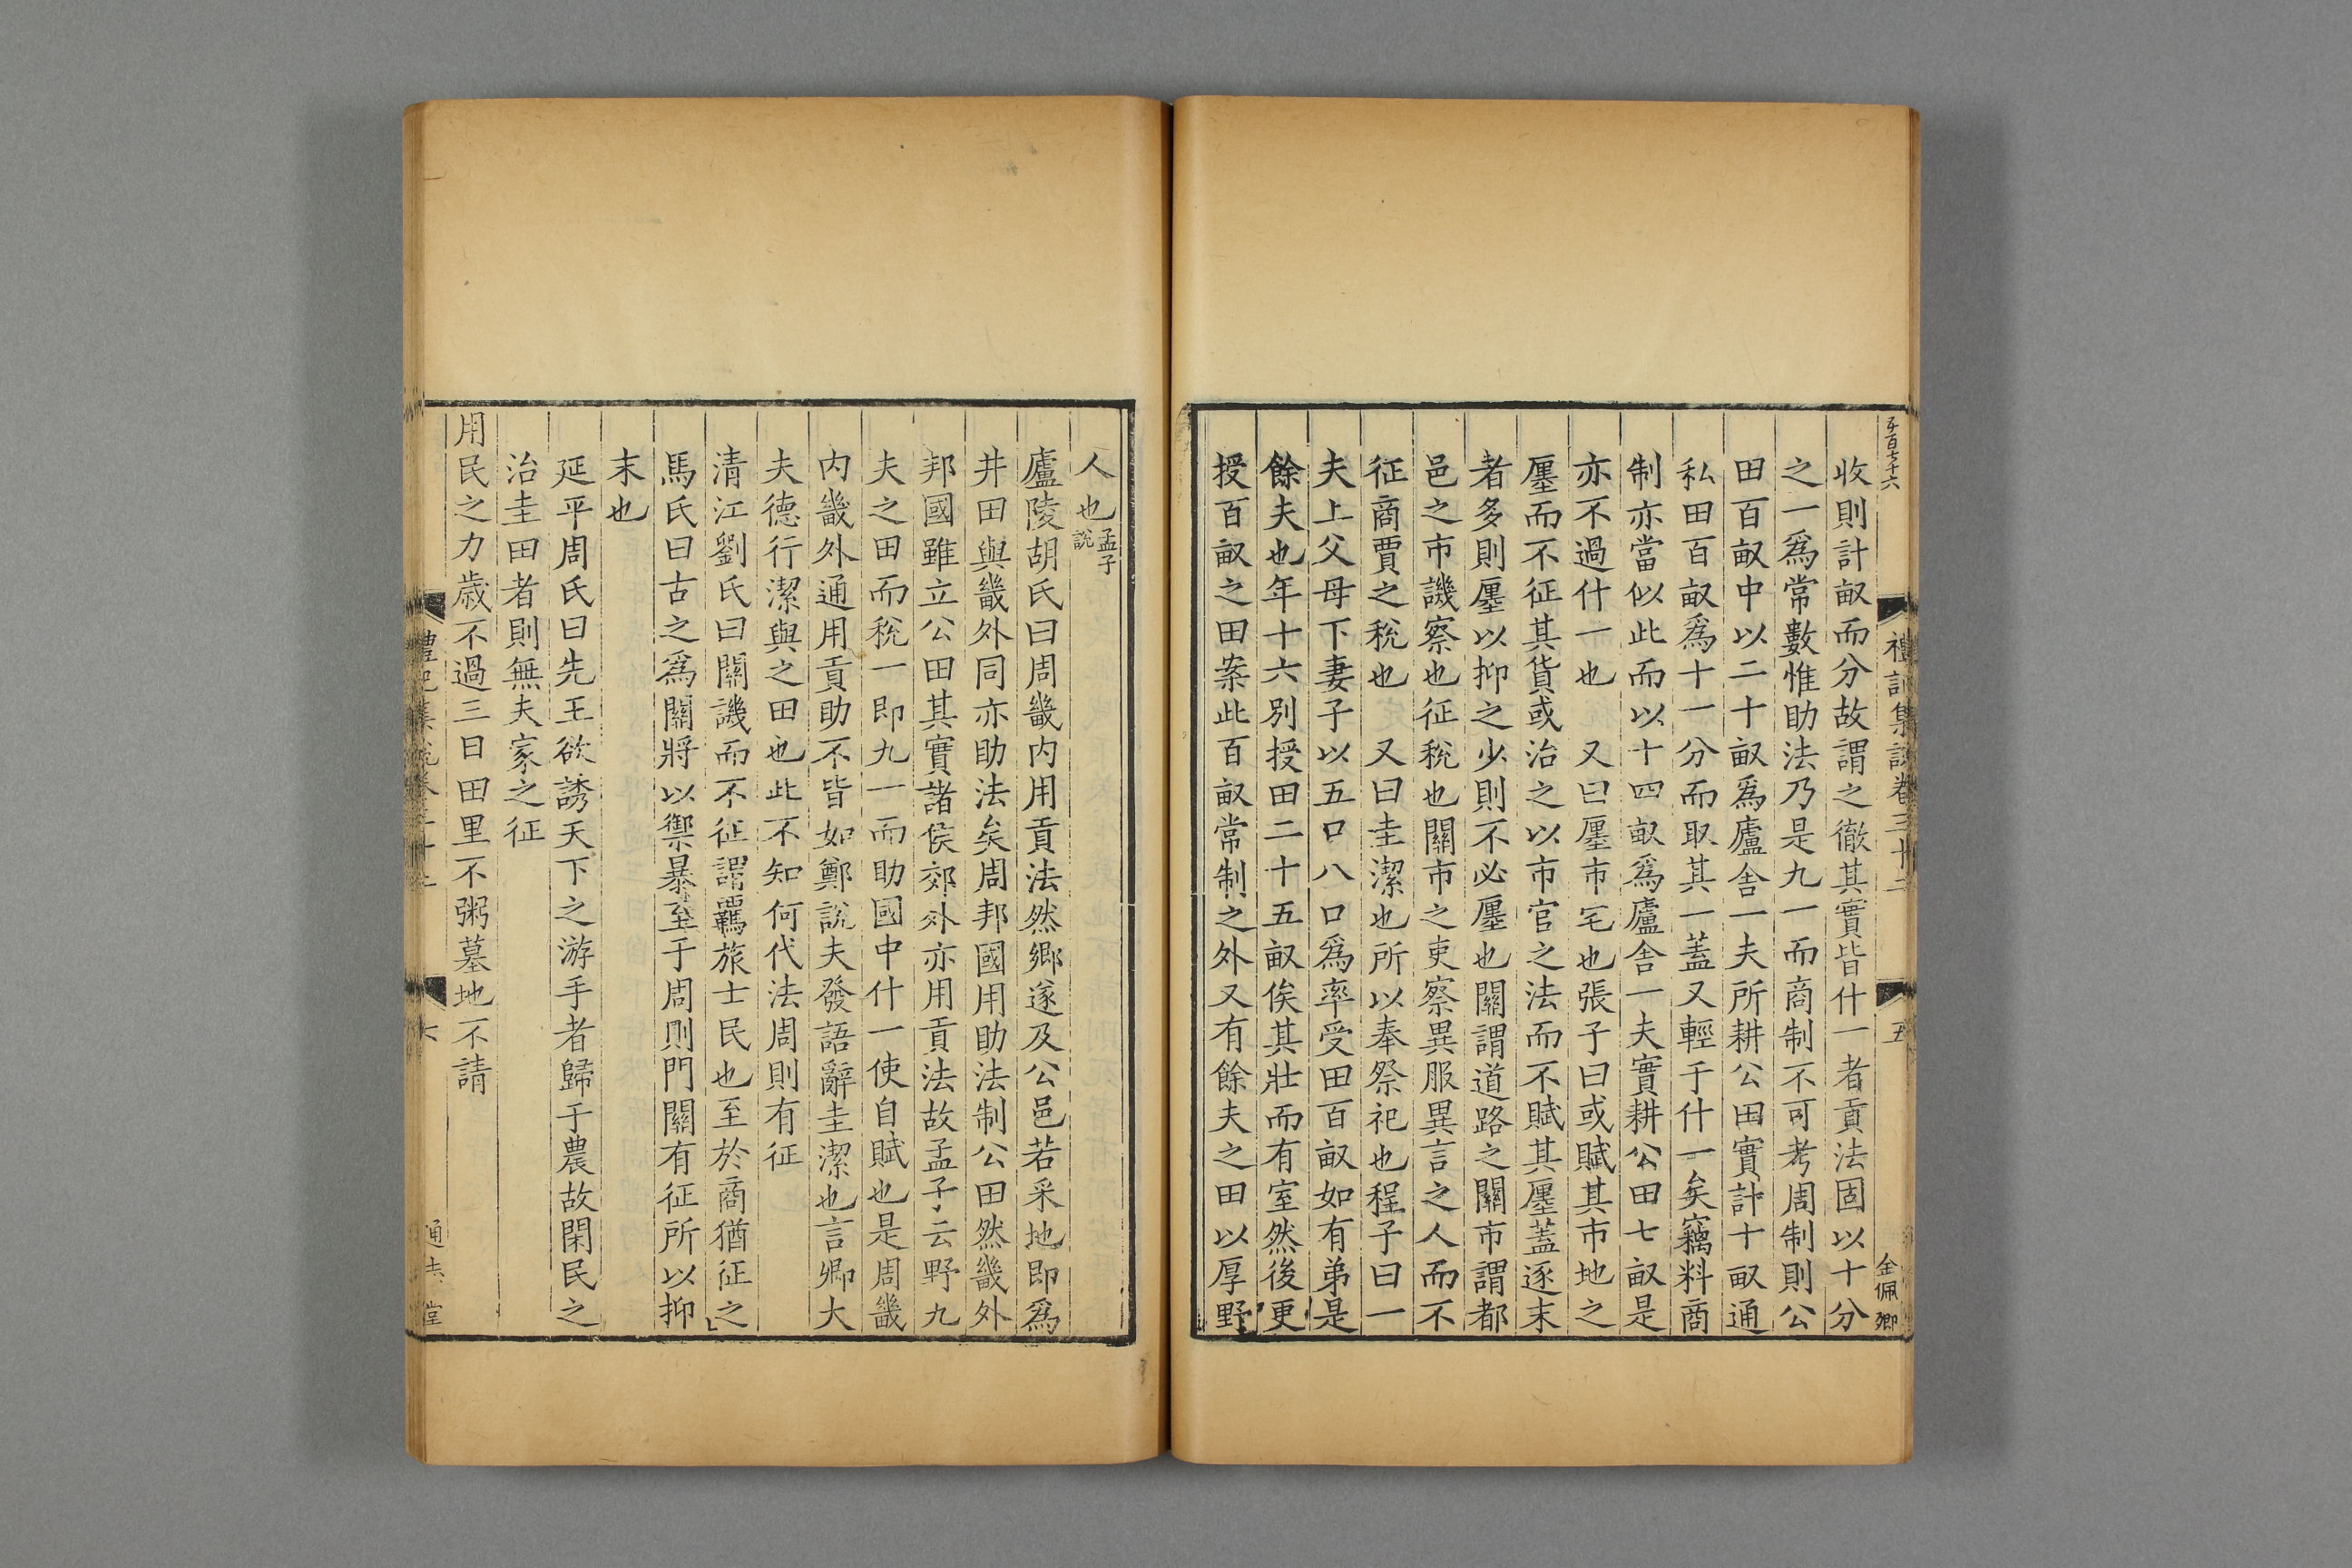 收則計畝而分故謂之徹其實皆什一者貢法固以十分
之一爲常數惟助法乃是九一而商制不可考周制則公
田百畝中以二十畝爲廬舎一夫所耕公田實計十畝通
私田百畝爲十一分而取其一蓋又輕于什一矣竊料商
制亦當似此而以十四畝爲廬舎一夫實耕公田七畝是
亦不過什一也　又曰廛市宅也張子曰或賦其市地之
廛而不征其貨或治之以市官之法而不賦其廛蓋逐末
者多則廛以抑之少則不必廛也關謂道路之關市謂都
邑之市譏察也征稅也關市之吏察異服異言之人而不
征商賈之稅也　又曰圭潔也所以奉祭祀也程子曰一
夫上父母下妻子以五口八口爲率受田百畝如有弟是
餘夫也年十六別授田二十五畝俟其壯而有室然後更
授百畝之田案此百畝常制之外又有餘夫之田以厚野
禮記集說卷三十二
五
金佩卿
人也孟子說
廬陵胡氏曰周畿内用貢法然鄉遂及公邑若采地即爲
井田與畿外同亦助法矣周邦國用助法制公田然畿外
邦國雖立公田其實諸侯郊外亦用貢法故孟子云野九
夫之田而稅一即九一而助國中什一使自賦也是周畿
内畿外通用貢助不皆如鄭說夫發語辭圭潔也言卿大
夫德行潔與之田也此不知何代法周則有征
清江劉氏曰關譏而不征謂羈旅士民也至於商猶征之
馬氏曰古之爲關將以禦暴至于周則門關有征所以抑
末也
延平周氏曰先王欲誘天下之游手者歸于農故閑民之
治圭田者則無夫家之征
用民之力歲不過三日田里不粥墓地不請
六
通志堂